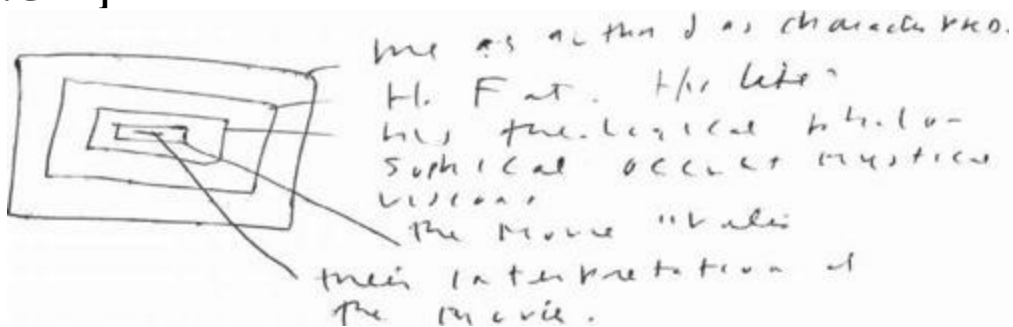 me as author & as character PKD.
H. Fat. His life
his theological philo-
sophical occult mystical
visions
the Movie "Valis
their interpretation of
the movie.